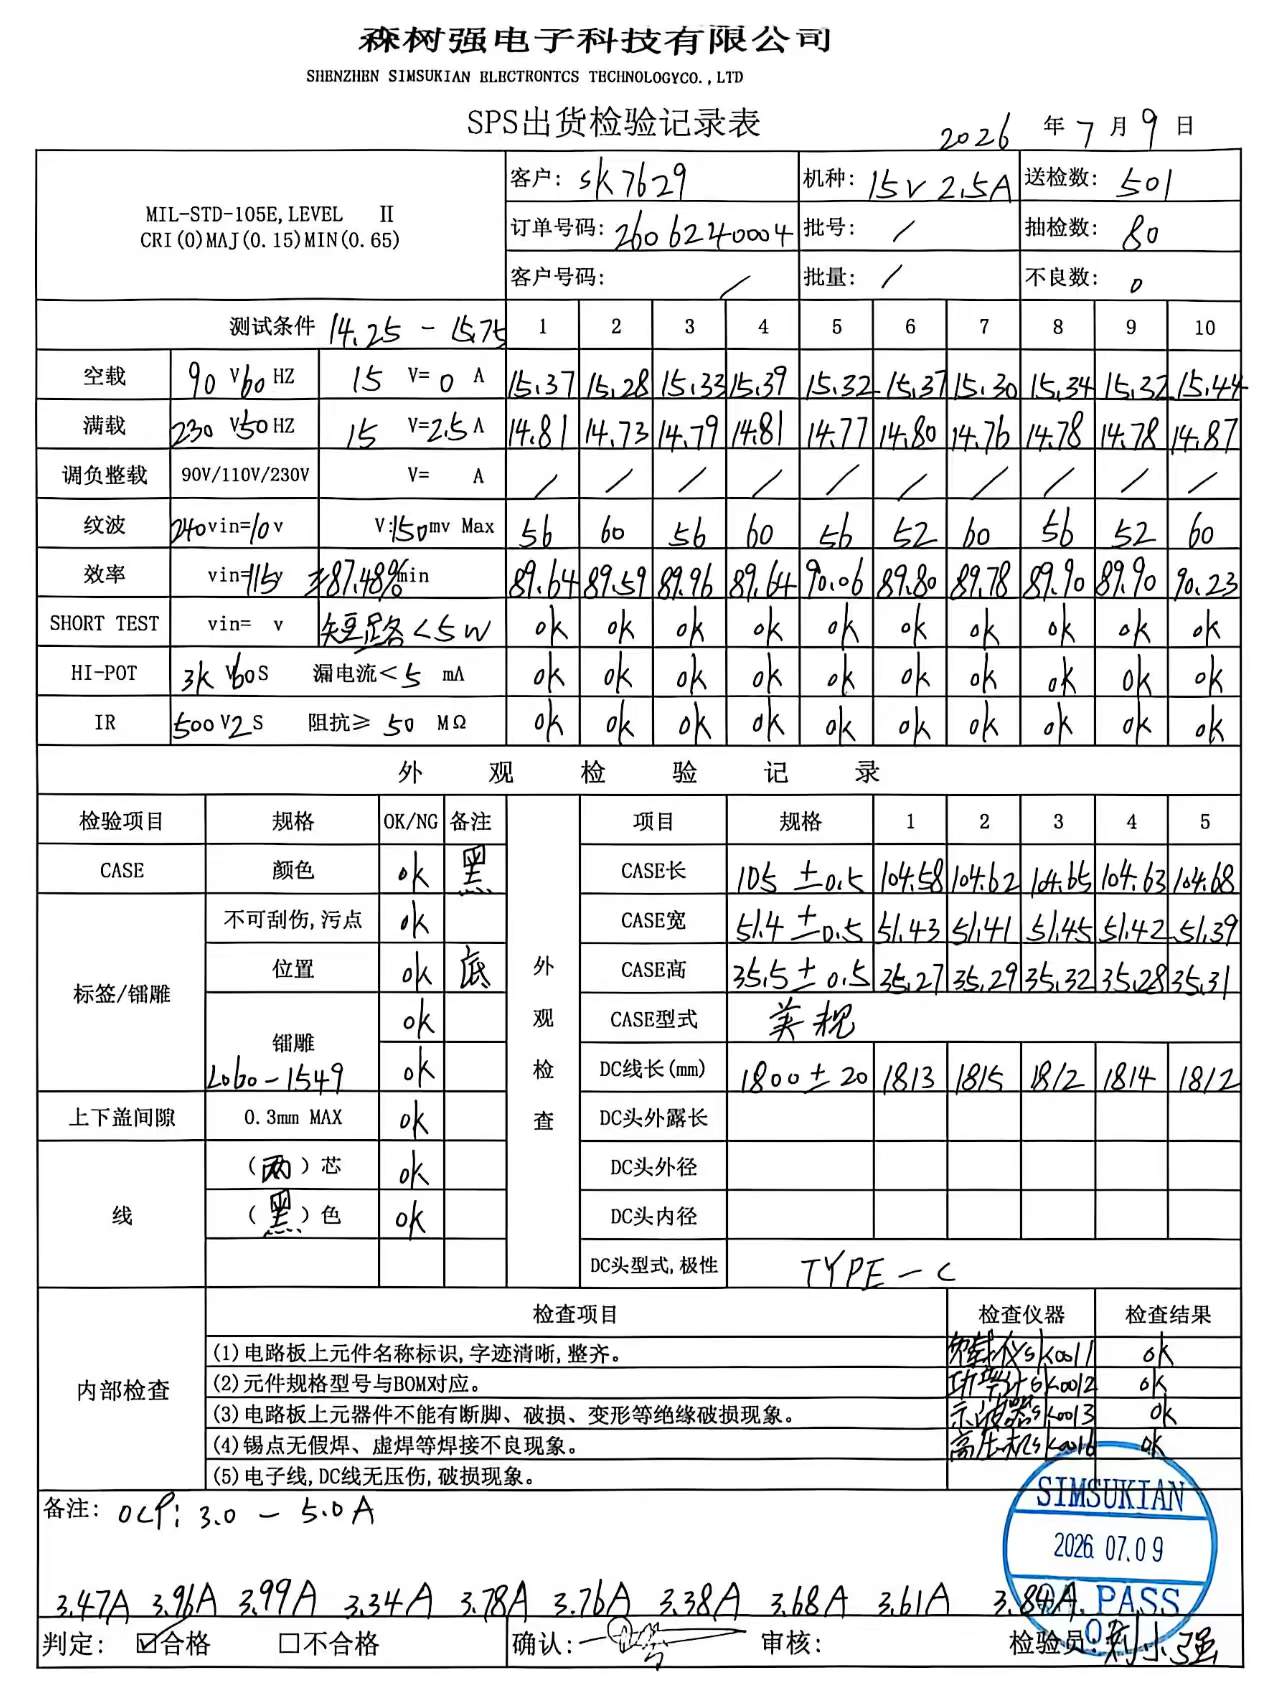 森树强电子科技有限公司
SHENZHEN SIMSUKIAN ELECTRONTCS TECHNOLOGYCO.,LTD
SPS出货检验记录表
2026 年 7 月 9 日
MIL-STD-105E,LEVEL II
CRI(0)MAJ(0.15)MIN(0.65)
客户: SK7629 机种: 15V 2.5A 送检数: 501
订单号码: 2606240004 批号: / 抽检数: 80
客户号码: / 批量: / 不良数: 0
测试条件 14.25 - 15.75 1 2 3 4 5 6 7 8 9 10
空载 90 V 60 HZ 15 V= 0 A 15.37 15.28 15.33 15.39 15.32 15.37 15.30 15.34 15.32 15.44
满载 230 V 50 HZ 15 V= 2.5 A 14.81 14.73 14.79 14.81 14.77 14.80 14.76 14.78 14.78 14.87
调负整载 90V/110V/230V V= A / / / / / / / / / /
纹波 240 vin= 10 v V: 150 mv Max 56 60 56 60 56 52 60 56 52 60
效率 vin= 115 v ≥87.48% min 89.64 89.59 89.96 89.64 90.06 89.80 89.78 89.90 89.90 90.23
SHORT TEST vin= v 短路<5W ok ok ok ok ok ok ok ok ok ok
HI-POT 3K V 60 S 漏电流< 5 mA ok ok ok ok ok ok ok ok ok ok
IR 500 V 2 S 阻抗≥ 50 MΩ ok ok ok ok ok ok ok ok ok ok
外观检验记录
检验项目 规格 OK/NG 备注 项目 规格 1 2 3 4 5
CASE 颜色 ok 黑 CASE长 105 ±0.5 104.58 104.62 104.65 104.63 104.68
不可刮伤,污点 ok CASE宽 51.4 ±0.5 51.43 51.41 51.45 51.42 51.39
标签/镭雕 位置 ok 底 外观检查 CASE高 35.5 ± 0.5 35.27 35.29 35.32 35.28 35.31
ok CASE型式 美规
镭雕 Lobo-1549 ok DC线长(mm) 1800 ± 20 1813 1815 1812 1814 1812
上下盖间隙 0.3mm MAX ok DC头外露长
线 (两)芯 ok DC头外径
(黑)色 ok DC头内径
DC头型式,极性 TYPE-C
内部检查 检查项目 检查仪器 检查结果
(1)电路板上元件名称标识,字迹清晰,整齐。 SK0011 ok
(2)元件规格型号与BOM对应。 功率计SK0012 ok
(3)电路板上元器件不能有断脚、破损、变形等绝缘破损现象。 示波器SK0013 ok
(4)锡点无假焊、虚焊等焊接不良现象。 高压机SK0016 ok
(5)电子线,DC线无压伤,破损现象。
备注: OCP: 3.0 - 5.0A
SIMSUKIAN
2026.07.09
QA PASS
3.47A 3.96A 3.99A 3.34A 3.78A 3.76A 3.38A 3.68A 3.61A 3.84A
判定: ☑合格 □不合格 确认: 审核: 检验员: 刘小强